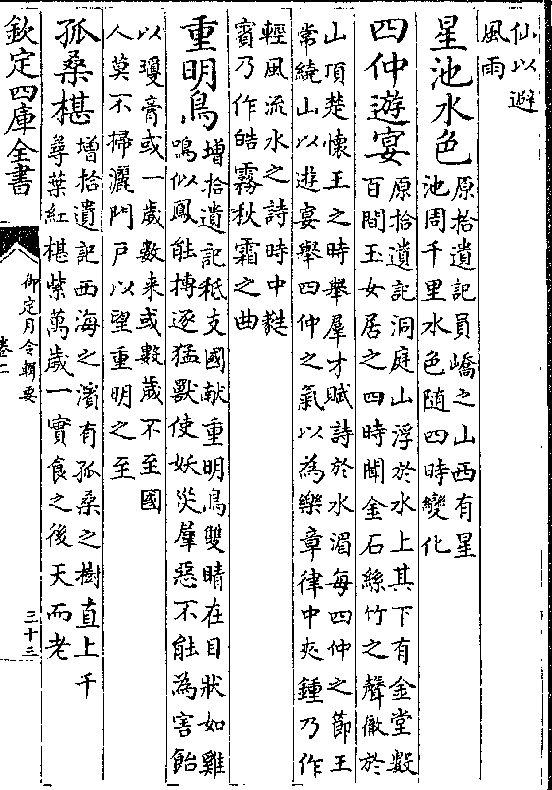 仙以避
風雨
星池水色
原拾遺記員嶠之山西有星
池周千里水色随四時變化
四仲遊宴
原拾遺記洞庭山浮於水上其下有金堂數
百間玉女居之四時聞金石絲竹之聲徹於
山頂楚懷王之時舉羣才賦詩於水湄每四仲之節王
常繞山以遊宴舉四仲之氣以為樂章律中夾鍾乃作
輕風流水之詩時中蕤
賓乃作皓霧秋霜之曲
重明鳥
增拾遺記秪支國献重明鳥雙睛在目狀如雞
鳴似鳳能搏逐猛獸使妖災羣惡不能為害飴
以瓊膏或一歲數来或數歲不至國
人莫不掃灑門戸以望重明之至
孤桑椹
增拾遺記西海之濱有孤桑之樹直上千
尋葉紅椹紫萬歲一實食之後天而老
欽定四庫全書
御定月令輯要
卷二
三十三